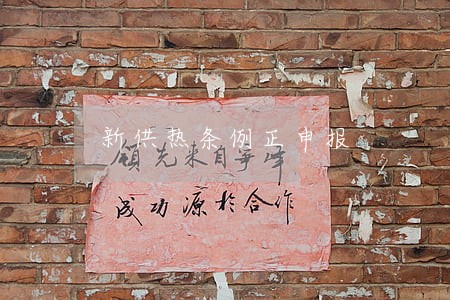 新供热条例正申报
领先来自争峰
成功源於合作